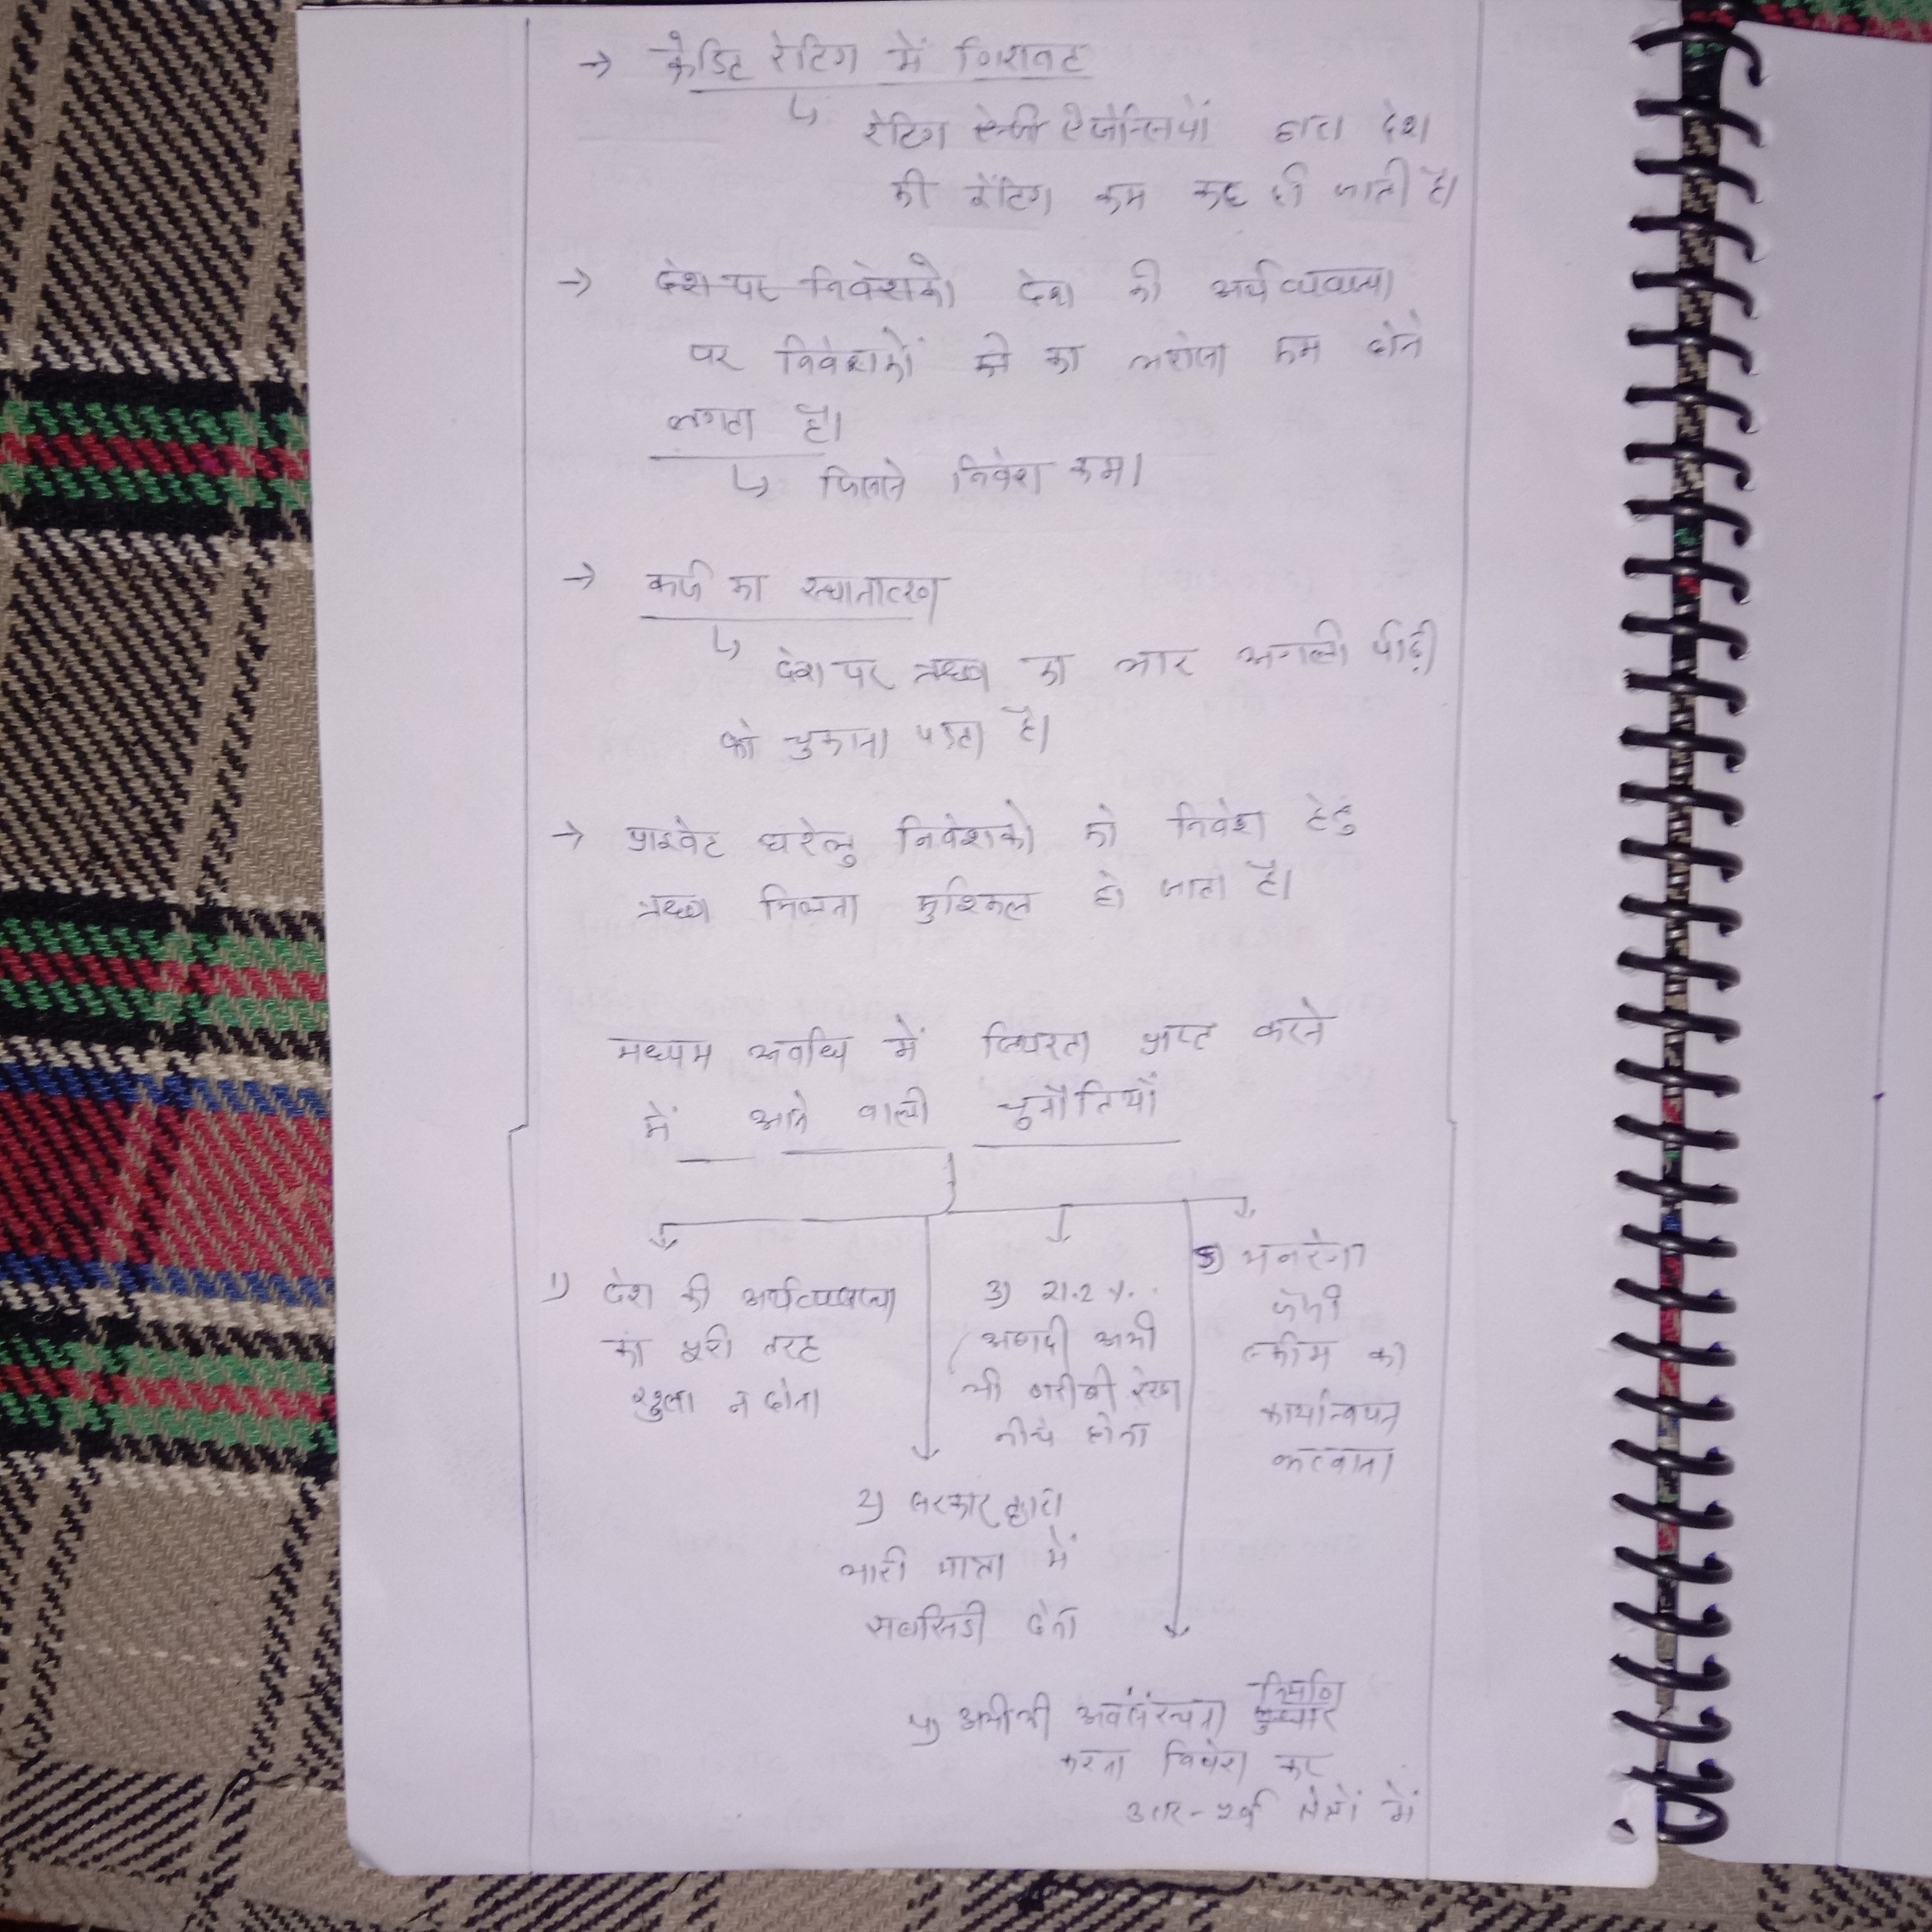 → क्रेडिट रेटिंग में गिरावट
↳ रेटिंग ऐजेन्सियों द्वारा देश
की रेंटिग कम कर दी जाती है।
→ देश पर निवेशको देश की अर्थव्यवस्था
पर निवेशकों को का भरोसा कम होने
लगता है।
↳ जिससे निवेश कम।
→ कर्ज का स्थानातरण
↳ देश पर ऋण का भार अगली पीढ़ी
को चुकाना पड़ता है।
→ प्राइवेट घरेलु निवेशको को निवेश हेतु
ऋण मिलना मुश्किल हो जाता है।
मध्यम अवधि में स्थिरता प्राप्त करने
में आने वाली चुनौतियाँ
1) देश की अर्थव्यवस्था
का पूरी तरह
खुला न होना
2) सरकार द्वारा
भारी मात्रा में
सबसिडी देना
3) 21.2 %
आबादी अभी
भी गरीबी रेखा
नीचे होना
4) अभी भी अवसंरचना निर्माण
करना निवेश कर
उत्तर-पूर्व क्षेत्रों में
5) मनरेगा
जैसी
स्कीम का
कार्यान्वयन
करवाना